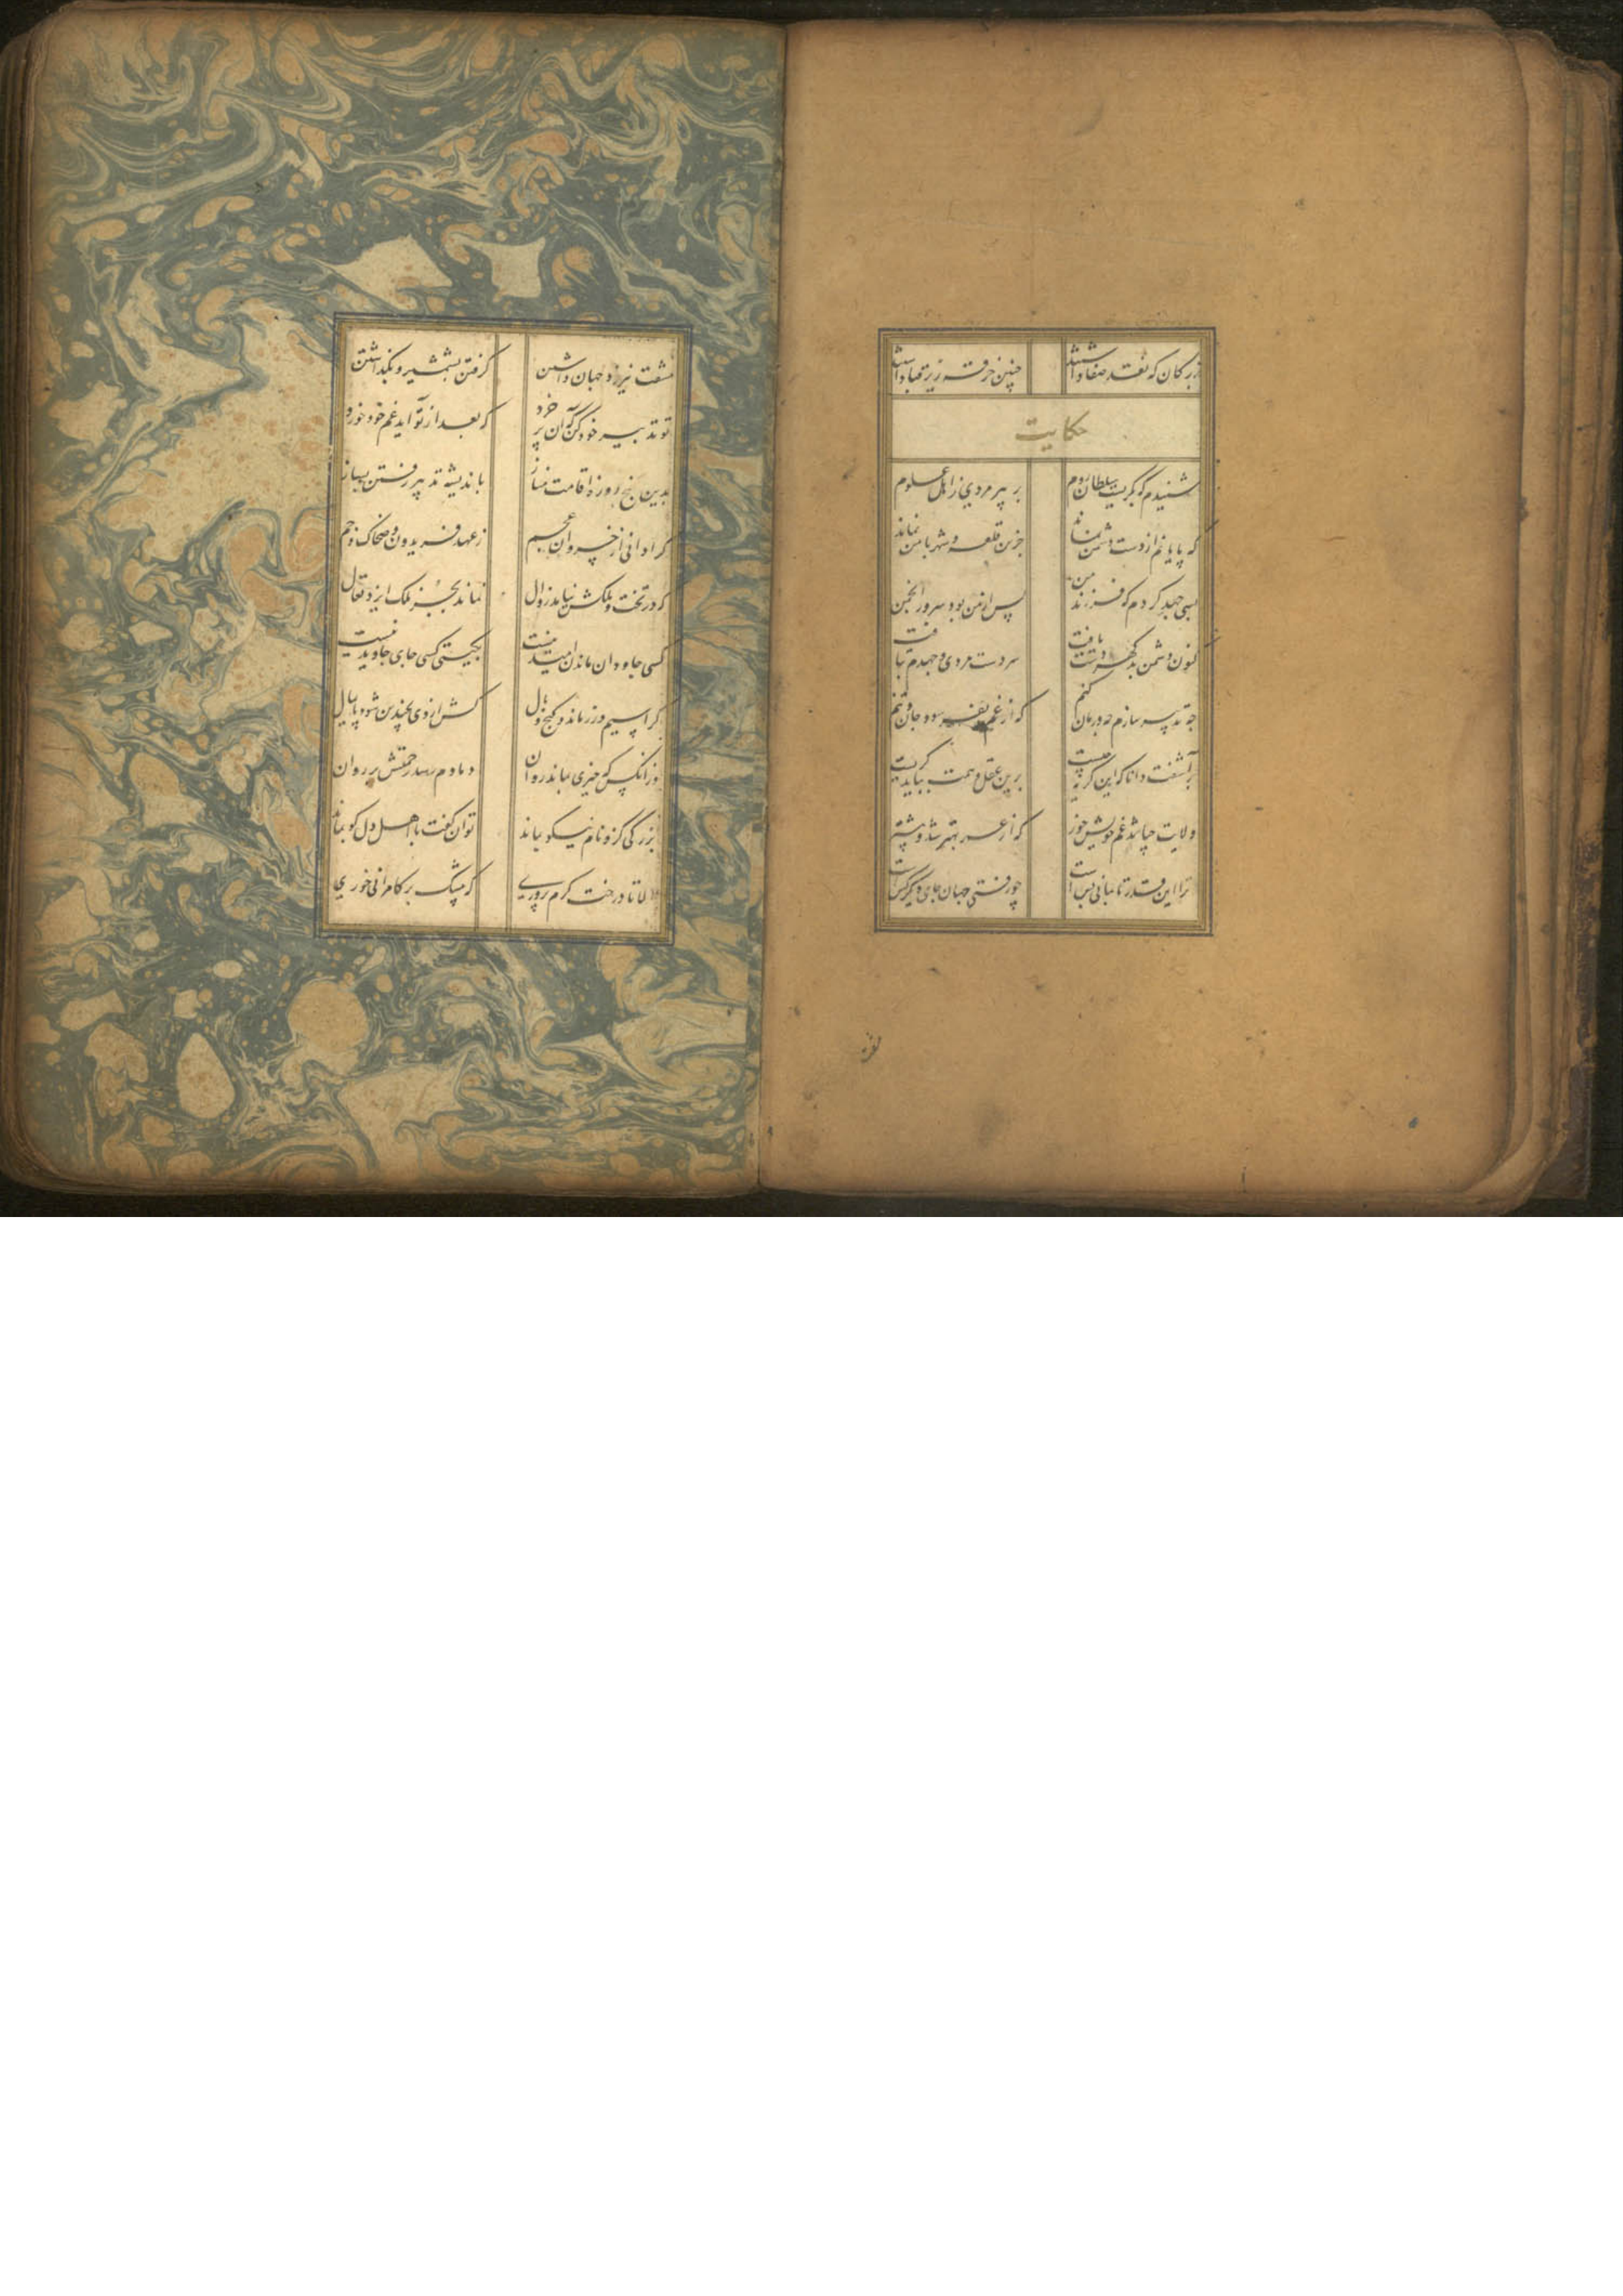 بزرگان که نقد صفا داشتند چنین خرقه زیر قبا داشتند
حکایت
شنیدم که بگریست سلطان روم بر پیر مردی ز اهل علوم
که پایانم از دست دشمن نماند جزین قلعه و شهر با من نماند
بسی جهد کردم که فرزند من پس از من بود سرور انجمن
کنون دشمن بدگهر دست یافت سر دست مردی و جهدم بتافت
چه تدبیر سازم چه درمان کنم که از غم بفرسود جان و تنم
برآشفت دانا که این گریه چیست برین عقل و همت بباید گریست
ولایت چباشد غم خویش خور که از عمر بهتر شد و بیشتر
ترا این قدر تا بمانی بس است چو رفتی جهان جای دیگر کس است
مشقت نیرزد جهان داشتن گرفتن بشمشیر و بگذاشتن
تو تدبیر خود کن که آن پر خرد که بعد از تو آید غم خود خورد
بدین پنج روزه اقامت مناز باندیشه تدبیر رفتن بساز
کرا دانی از خسروان عجم ز عهد فریدون و ضحاک و جم
که در تخت و ملکش نیامد زوال نماند بجز ملک ایزد تعال
کسی جاودان ماندن امید نیست بگیتی کسی جای جاوید نیست
کرا سیم و زر ماند و گنج و مال پس از وی بچندین شود پایمال
وز آنکس که خیری بماند روان دمادم رسد رحمتش بر روان
بزرگی کزو نام نیکو بماند توان گفت با اهل دل کو بماند
الا تا درخت کرم پروری که بیشک بر کامرانی خوری